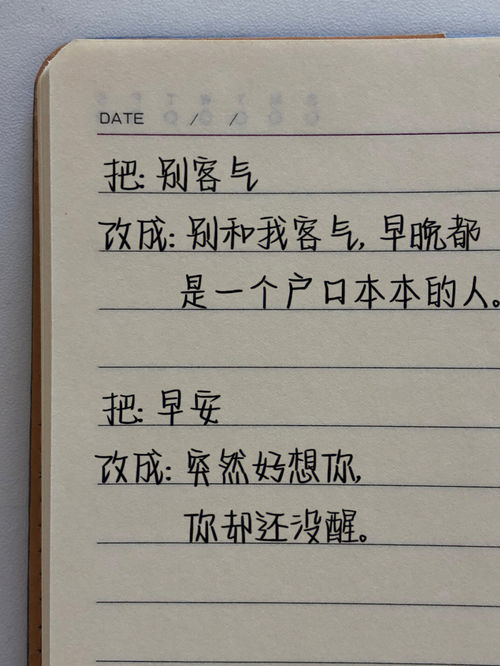 DATE / /
把: 别客气
改成: 别和我客气, 早晚都
是一个户口本本的人。
把: 早安
改成: 突然好想你,
你却还没醒。